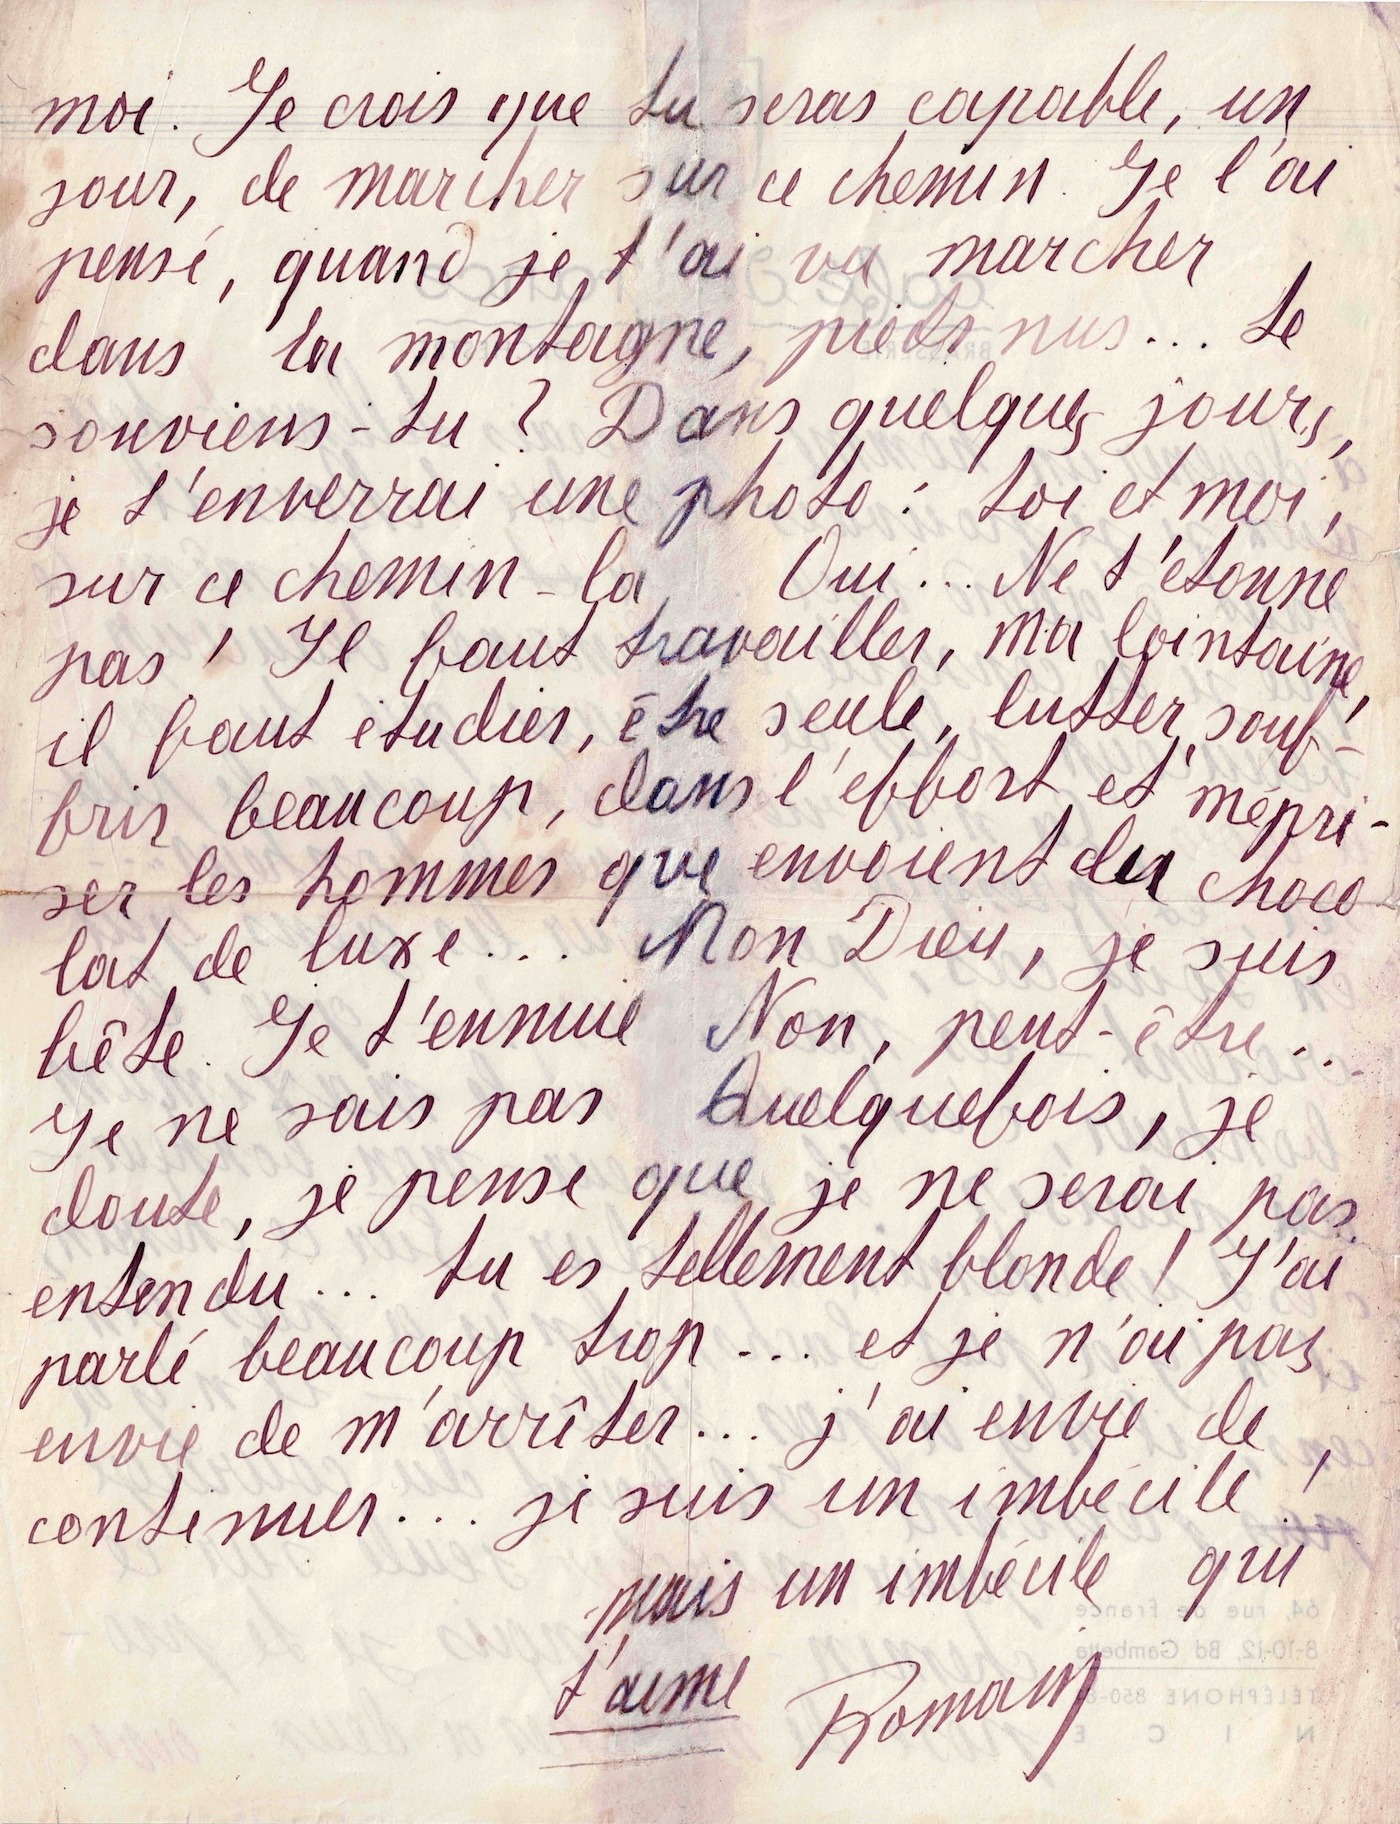 moi. Je crois que tu seras capable, un
jour, de marcher sur ce chemin. Je l'ai
pensé, quand je t'ai vu marcher
dans la montagne, pieds nus... te
souviens-tu ? Dans quelques jours,
je t'enverrai une photo : toi et moi,
sur ce chemin-là Oui... Ne t'étonne
pas ! Il faut travailler, ma lointaine,
il faut étudier, être seule, lutter, souf-
frir beaucoup, dans l'effort et mépri-
ser les hommes que envoient du choco
lat de luxe... Mon Dieu, je suis
bête. Je t'ennuie Non, peut-être...
Je ne sais pas Quelquefois, je
doute, je pense que je ne serai pas
entendu... tu es tellement blonde ! J'ai
parlé beaucoup trop... et je n'ai pas
envie de m'arrêter... j'ai envie de
continuer... je suis un imbécile !
mais un imbécile qui
t'aime Romain
64, rue de France
8-10-12, Bd Gambetta
TÉLÉPHONE 850-
N I C E